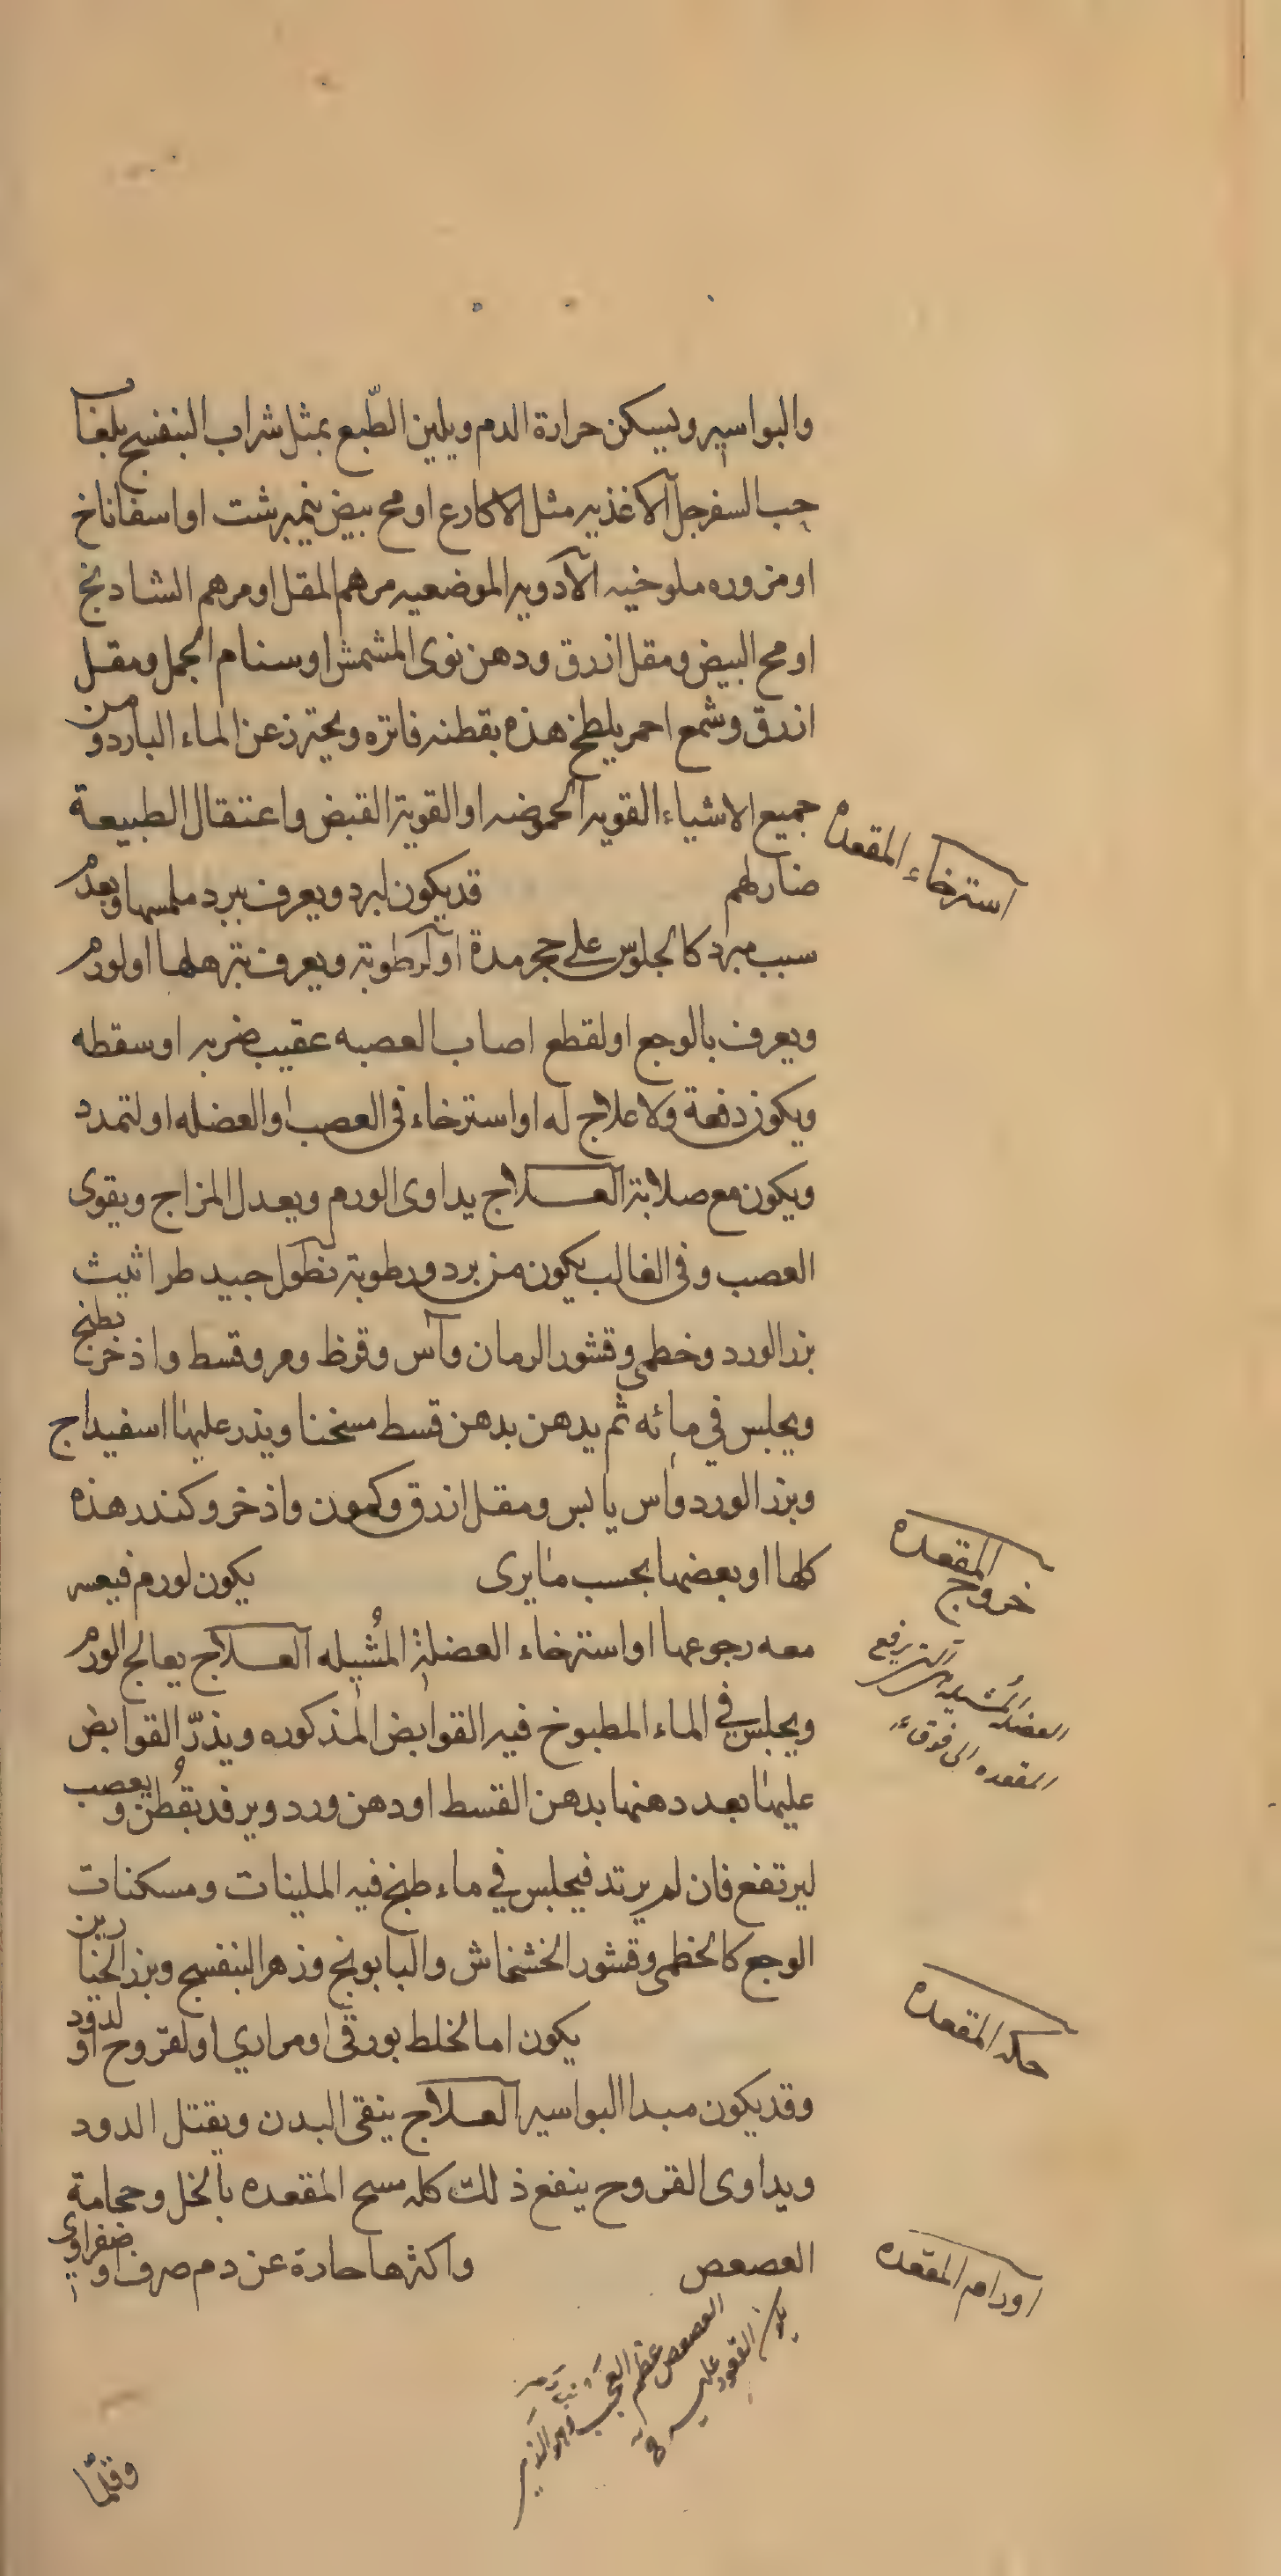 والبواسير ويسكن حرارة الدم ويلين الطّبع بمثل شراب البنفسج بلعاب
حب السفرجل الاغذيه مثل الاكارع او مح بيض نيمبرشت او اسفاناخ
او مزوره ملوخيه الادويه الموضعيه مرهم المقل او مرهم الشادنج
او مح البيض ومقل ازرق ودهن نوى المشمش او سنام الجمل ومقل
ازرق وشمع احمر يلطخ هذه بقطنه فاتره ويحترز عن الماء البارد ومن
جميع الاشياء القويه الحموضه او القوية القبض واعتقال الطبيعة
استرخاء المقعده
ضار لهم قد يكون لبرد ويعرف ببرد ملمسها وبعدم
سبب مبرد كالجلوس على حجر مدة او لرطوبة ويعرف بترهلها او لورم
ويعرف بالوجع او لقطع اصاب العصبه عقيب ضربه او سقطه
ويكون دفعة ولا علاج له او استرخاء فى العصب او العضله او لتمدد
ويكون مع صلابة العلاج يداوى الورم ويعدل المزاج ويقوى
العصب وفى الغالب يكون من برد ورطوبة نطول جيد طراثيث
بزر الورد وخطمى وقشور الرمان وآس وقرظ ومر وقسط واذخر يطبخ
ويجلس في مائه ثم يدهن بدهن قسط مسخنا ويذر عليها اسفيداج
وبزر الورد وآس يابس ومقل ازرق وكمون واذخر وكندر هذه
كلها او بعضها بحسب ما يرى يكون لورم فيعسر
خروج المقعده
معه رجوعها او استرخاء العضلة المُشيله العلاج يعالج الورم
العضله المُشيله التى يرفع
المقعده الى فوق
ويجلس في الماء المطبوخ فيه القوابض المذكوره ويذرّ القوابض
عليها بعد دهنها بدهن القسط او دهن ورد ويرفد بقُطن ويعصب
ليرتفع فان لم يرتد فيجلس في ماء طبخ فيه الملينات ومسكنات
الوجع كالخطمى وقشور الخشخاش والبابونج وزهر البنفسج وبزر الخبازين
حكه المقعده
يكون اما لخلط بورقى او مراري او لقروح او لدود
وقد يكون مبدا البواسير العلاج ينقى البدن ويقتل الدود
ويداوى القروح ينفع ذلك كله مسح المقعده بالخل وحجامة
العصعص واكثرها حادة عن دم صرف او صفراوى
اورام المقعده
العصعص عظم العجب وهو الذى
يكون القعود عليه
وقلّما